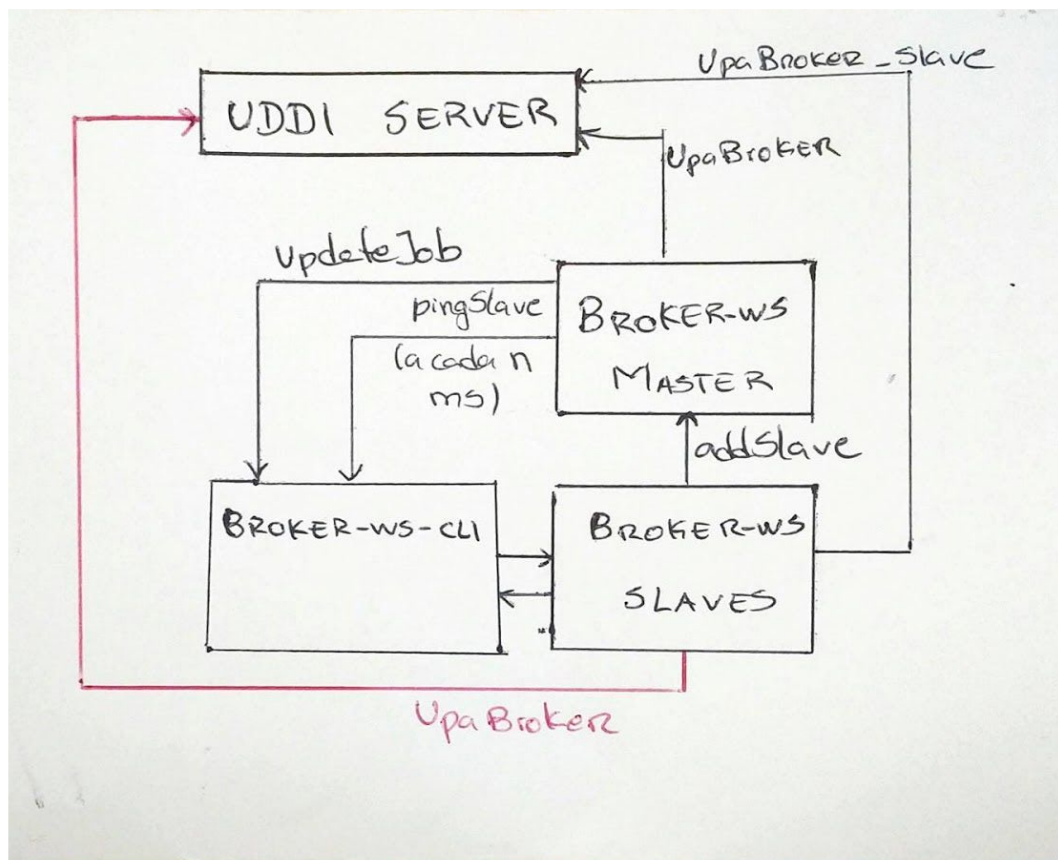 UpaBroker_Slave
UDDI SERVER
UpaBroker
UpdateJob
pingSlave
(a cada n
ms)
BROKER-WS
MASTER
addSlave
BROKER-WS-CLI
BROKER-WS
SLAVES
UpaBroker